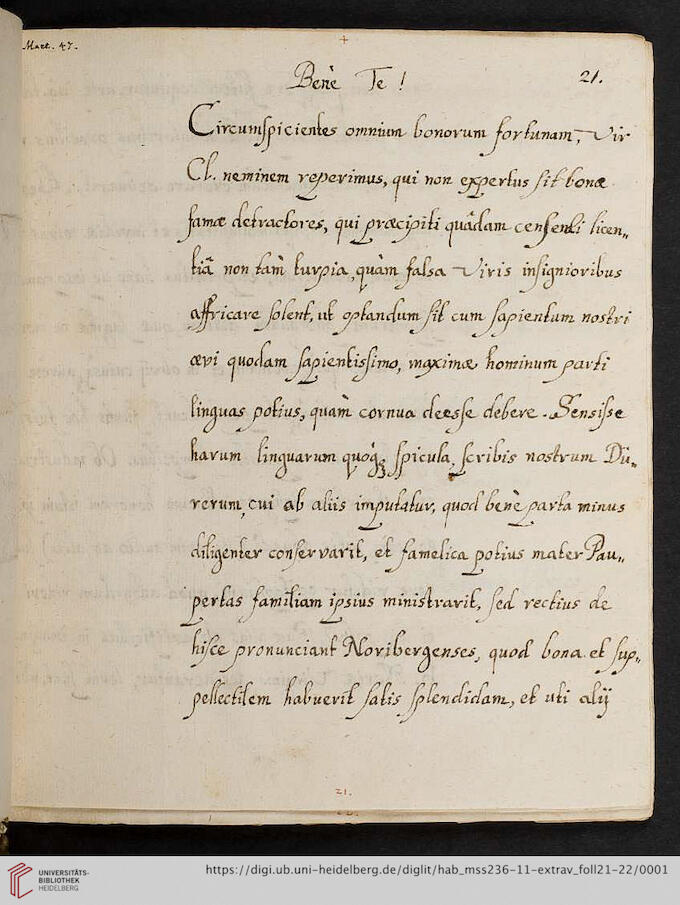 Mart. 47.
Benè Te !
21.
Circumſpicientes omnium bonorum fortunam, Vir
Cl. neminem reperimus, qui non expertus ſit bonæ
famæ detractores, qui præcipiti quâdam cenſendi licen„
tiâ non tam̀ turpia, quàm falsa Viris inſignioribus
affricare ſolent, ut optandum ſit cum ſapientum nostri
ævi quodam ſapientiſſimo, maximæ hominum parti
linguas potius, quam̀ cornua deesſe debere. Senſiſse
harum linguarum quoq́ꝫ ſpicula ſcribis nostrum Dü„
rerum, cui ab aliis imputatur, quod benè parta minus
diligenter conſervarit, et famelica potius mater Pau„
pertas familiam ipſius miniſtrarit, ſed rectius de
hiſce pronunciant Noribergenses, quod bona et ſup„
pellectilem habuerit ſatis ſplendidam, et uti alij
21.
UNIVERSITÄTS-
BIBLIOTHEK
HEIDELBERG
https://digi.ub.uni-heidelberg.de/diglit/hab_mss236-11-extrav_foll21-22/0001